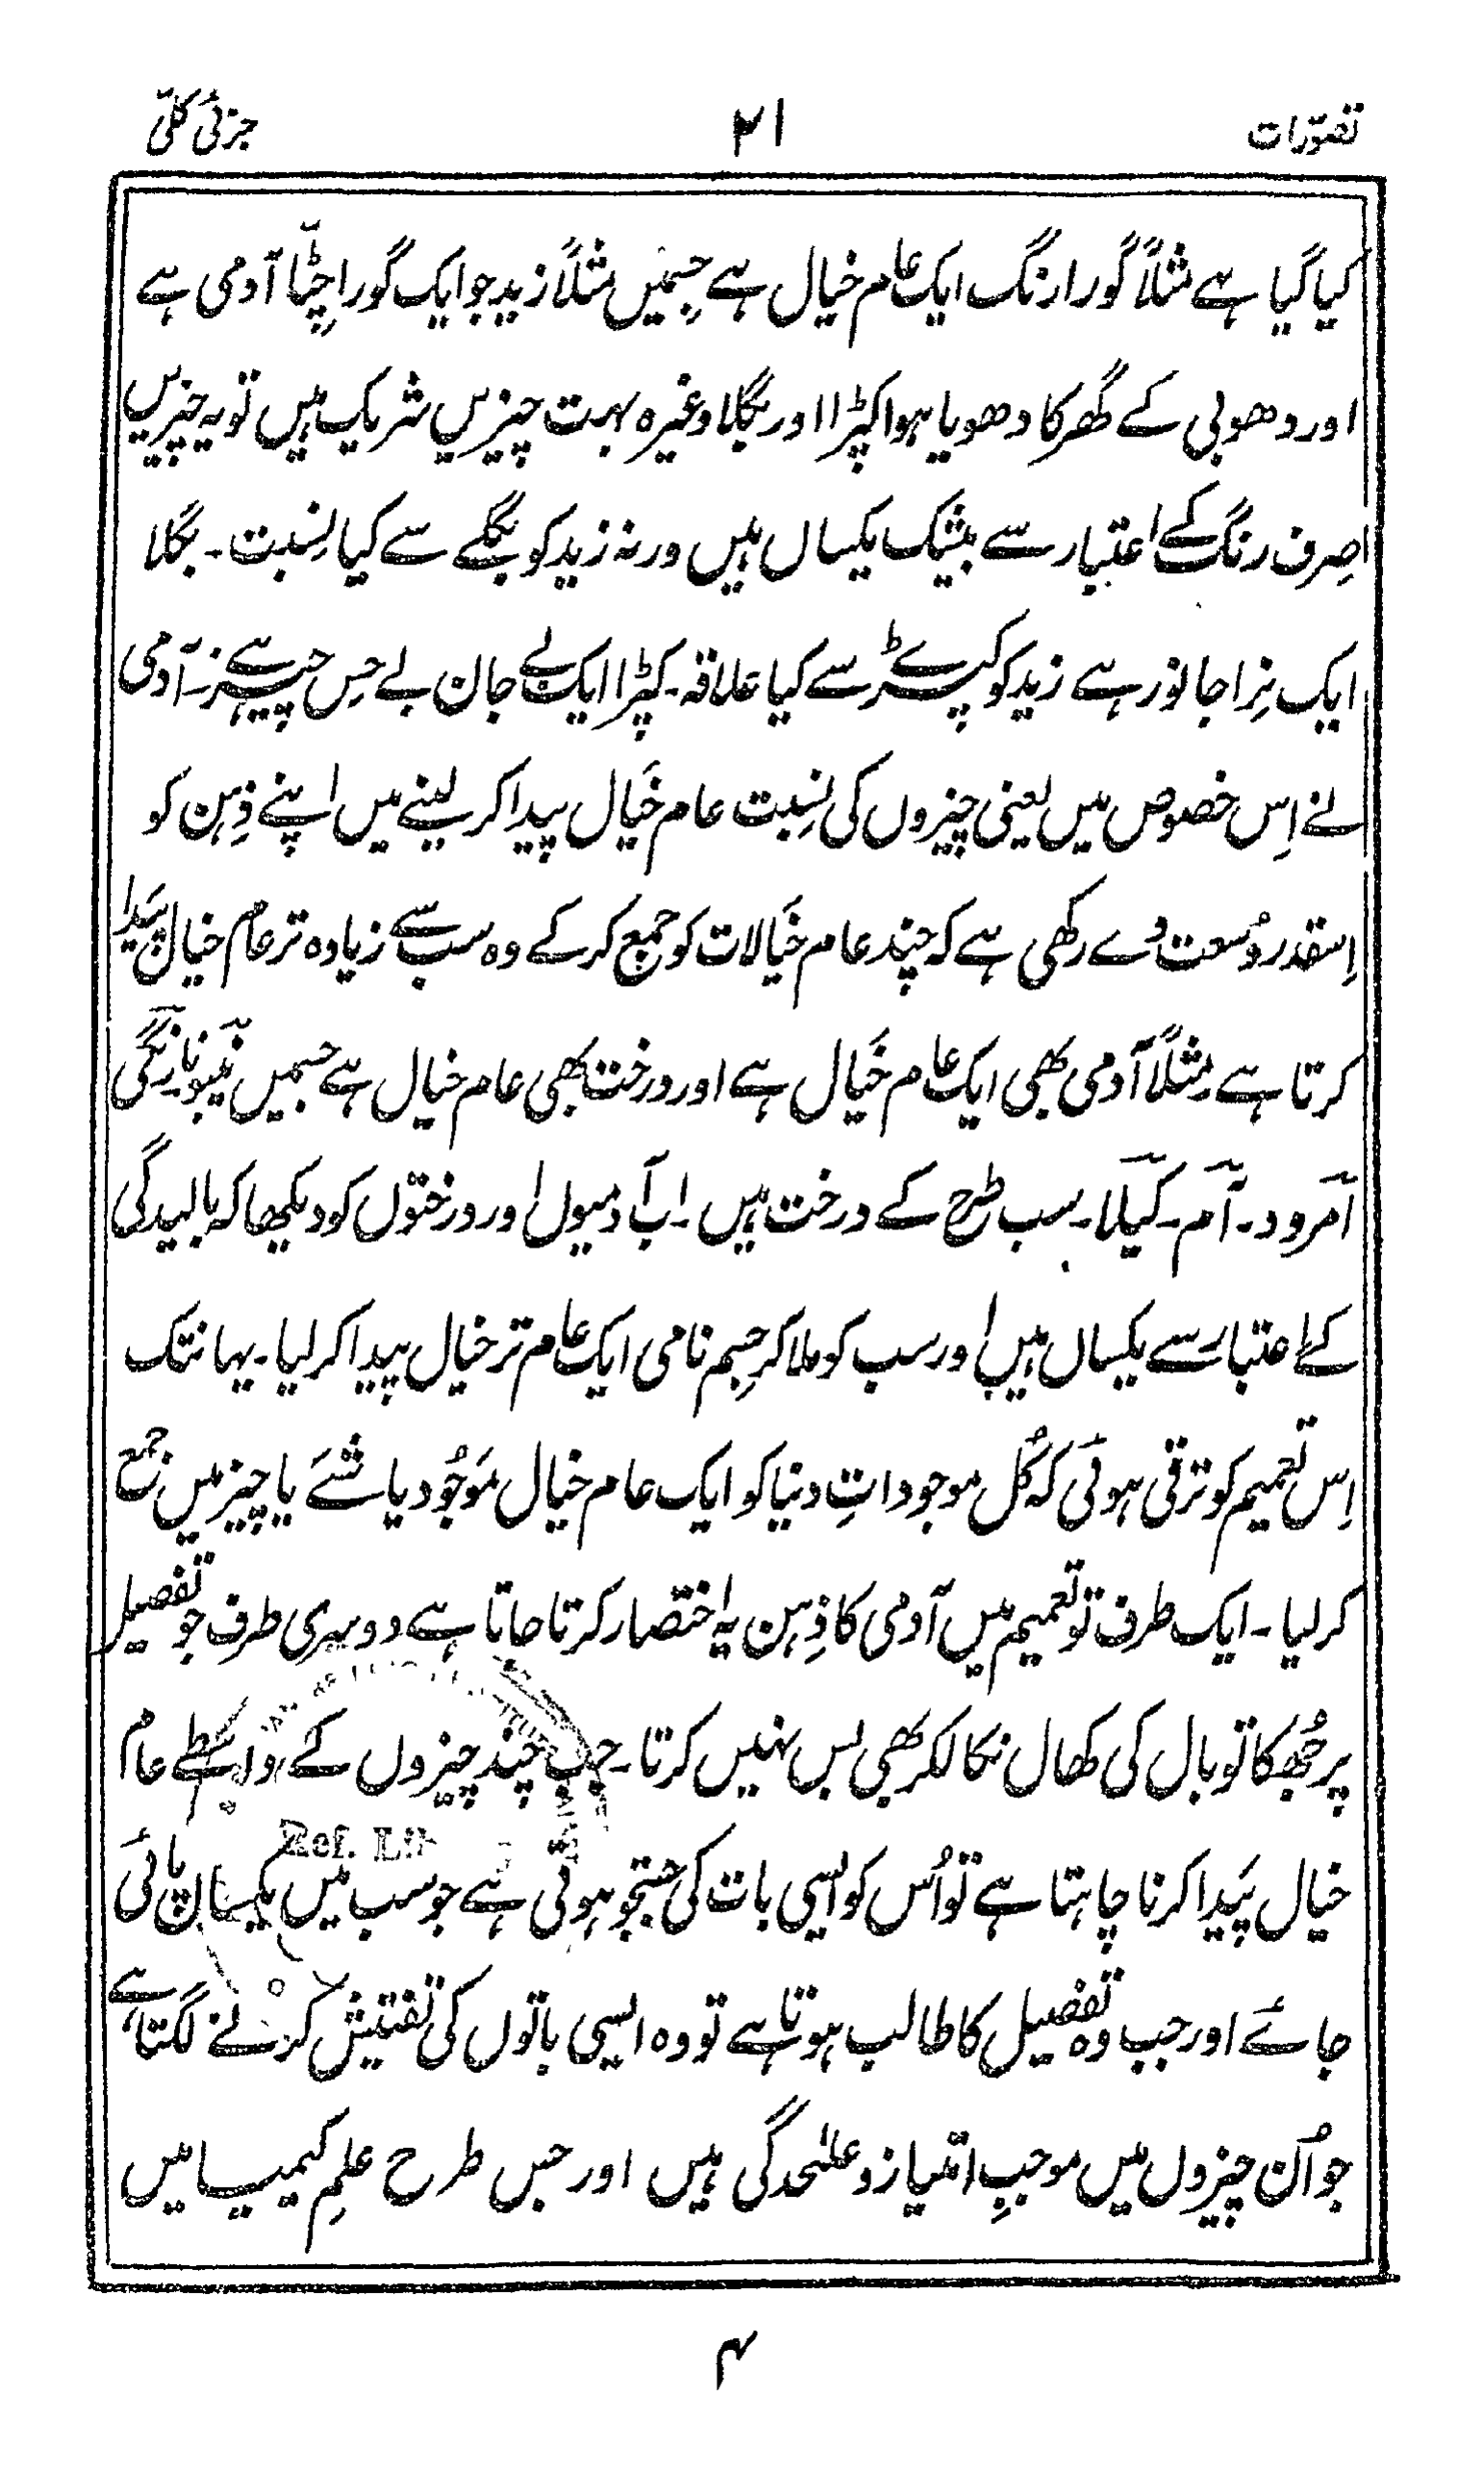 تصوّرات ۲۱ جزئی کلّی
کیا گیا ہے مثلاً گورا رنگ ایک عام خیال ہے جِسمیں مثلاً زید جو ایک گورا چِٹّا آدمی ہے
اور دھوبی کے گھر کا دھویا ہوا کپڑا اور بگلا وغیرہ بہت چیزیں شریک ہیں تو یہ چیزیں
صِرف رنگ کے اعتبار سے بیشک یکساں ہیں ورنہ زید کو بگلے سے کیا نِسبت ۔ بگلا
ایک نِرا جانور ہے زید کو کپڑے سے کیا علاقہ ۔ کپڑا ایک بے جان بے حِس چیز ہے ۔ آدمی
نے اِس خصوص میں یعنی چیزوں کی نِسبت عام خَیال پیدا کر لینے میں اپنے ذِہن کو
اِسقدر وُسعت دے رکھی ہے کہ چند عام خَیالات کو جمع کر کے وہ سب سے زیادہ تر عام خیال پَیدا
کرتا ہے مثلاً آدمی بھی ایک عام خَیال ہے اور درخت بھی عام خیال ہے جسمیں نیبو نارنگی
امرود ۔ آم ۔ کیلا ۔ سب طرح کے درخت ہیں ۔ اب آدمیوں اور درختوں کو دیکھا کہ بالیدگی
کے اعتبار سے یکساں ہیں اور سب کو ملا کر جِسم نامی ایک عام تر خیال پیدا کر لیا ۔ یہانتک
اِس تعمیم کو ترقی ہوئی کہ کُل موجوداتِ دنیا کو ایک عام خیال مَوجُود یا شَے یا چیز میں جمع
کر لیا ۔ ایک طرف تو تعمیم میں آدمی کا ذِہن یہ اختصار کرتا جاتا ہے دوسری طرف جو تفصیل
پر جُھکا تو بال کی کھال نکالکر بھی بس نہیں کرتا ۔ جب چند چیزوں کے واسطے عام
خیال پَیدا کرنا چاہتا ہے تو اُس کو ایسی بات کی جستجو ہوتی ہے جو سب میں یکساں پائی
جائے اور جب وہ تفصیل کا طالب ہوتا ہے تو وہ ایسی باتوں کی تفتیش کرنے لگتا ہے
جو اُن چیزوں میں موجبِ امتیاز و علٰحدگی ہیں اور جس طرح علمِ کیمیا میں
Ref. Lib
۴